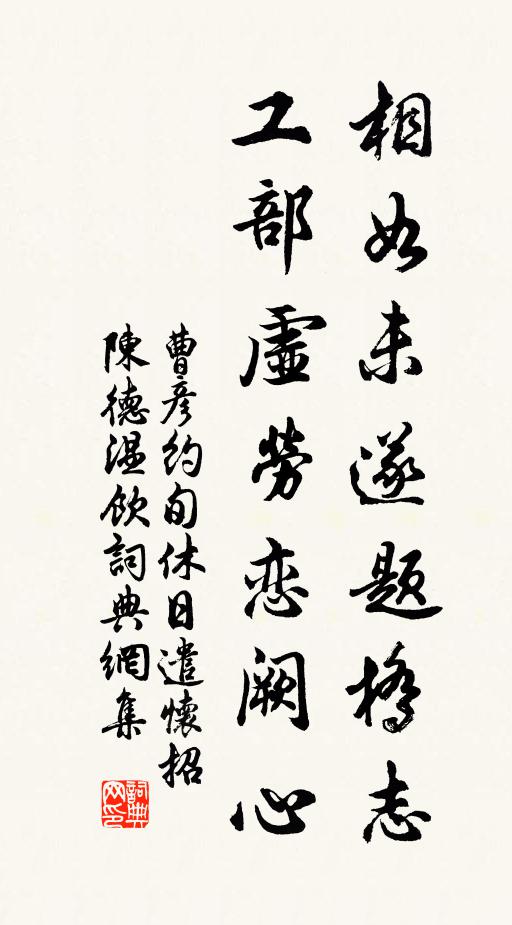 相如未遂题桥志
工部虚劳恋阙心
曹彦约旬休日遣怀招
陈德温饮词典网集
詞典
网印